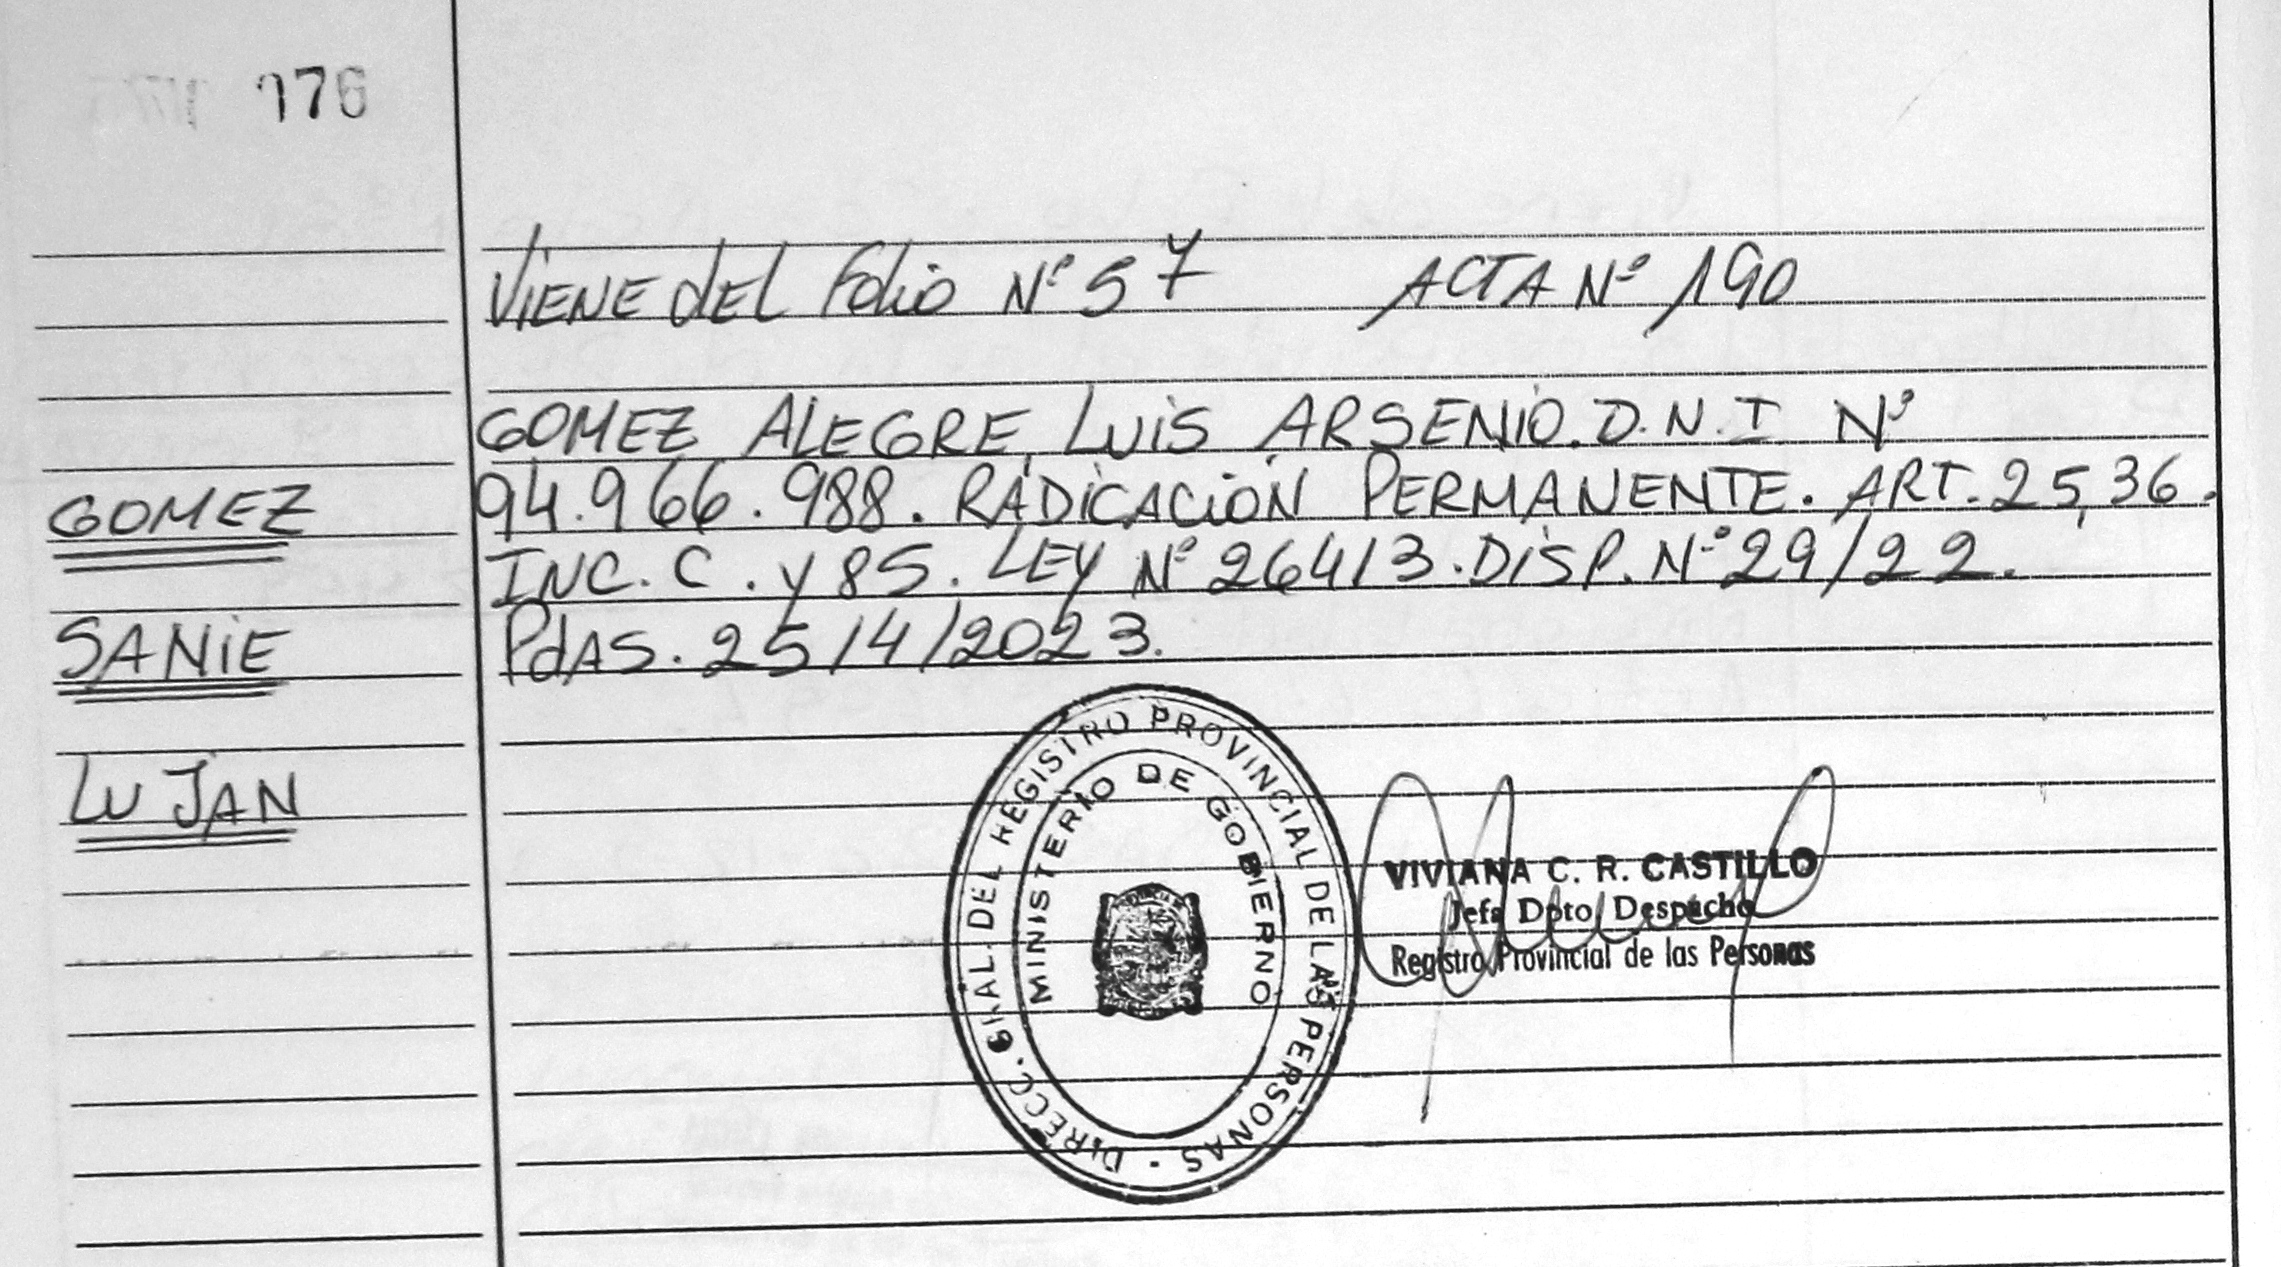 176
VIENE dEL Folio Nº 57 ACTA Nº 190
GOMEZ ALEGRE, LUIS ARSENIO. D.N.I Nº
94.966.988. RADICACIÓN PERMANENTE. ART. 25, 36.
INC. C. Y 85. LEY Nº 26413. DISP. Nº 29/22.
PdAS. 25/4/2023.
GOMEZ
SANIE
LUJAN
DIRECC. GRAL. DEL REGISTRO PROVINCIAL DE LAS PERSONAS
MINISTERIO DE GOBIERNO
VIVIANA C. R. CASTILLO
Jefa Dpto Despacho
Registro Provincial de las Personas